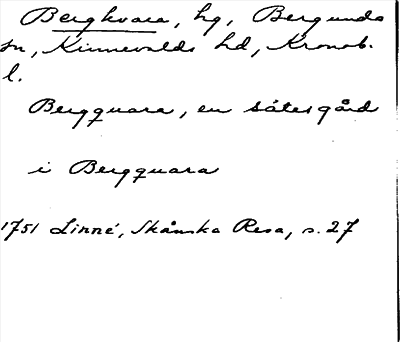 Bergkvara, hg, Bergunda
sn, Kinnevalds hd, Kronob.
l.
Bergquara, en sätesgård
i Bergquara
1751 Linné, Skånska Resa, s. 27